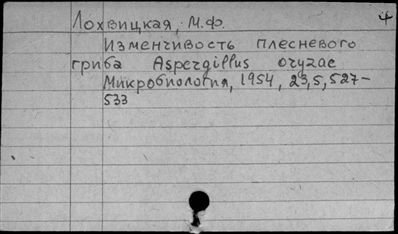 Лохвицкая, М.Ф.
Изменчивость плесневого
гриба Aspergillus oryzae
Микробиология, 1954, 23,5,527-
533